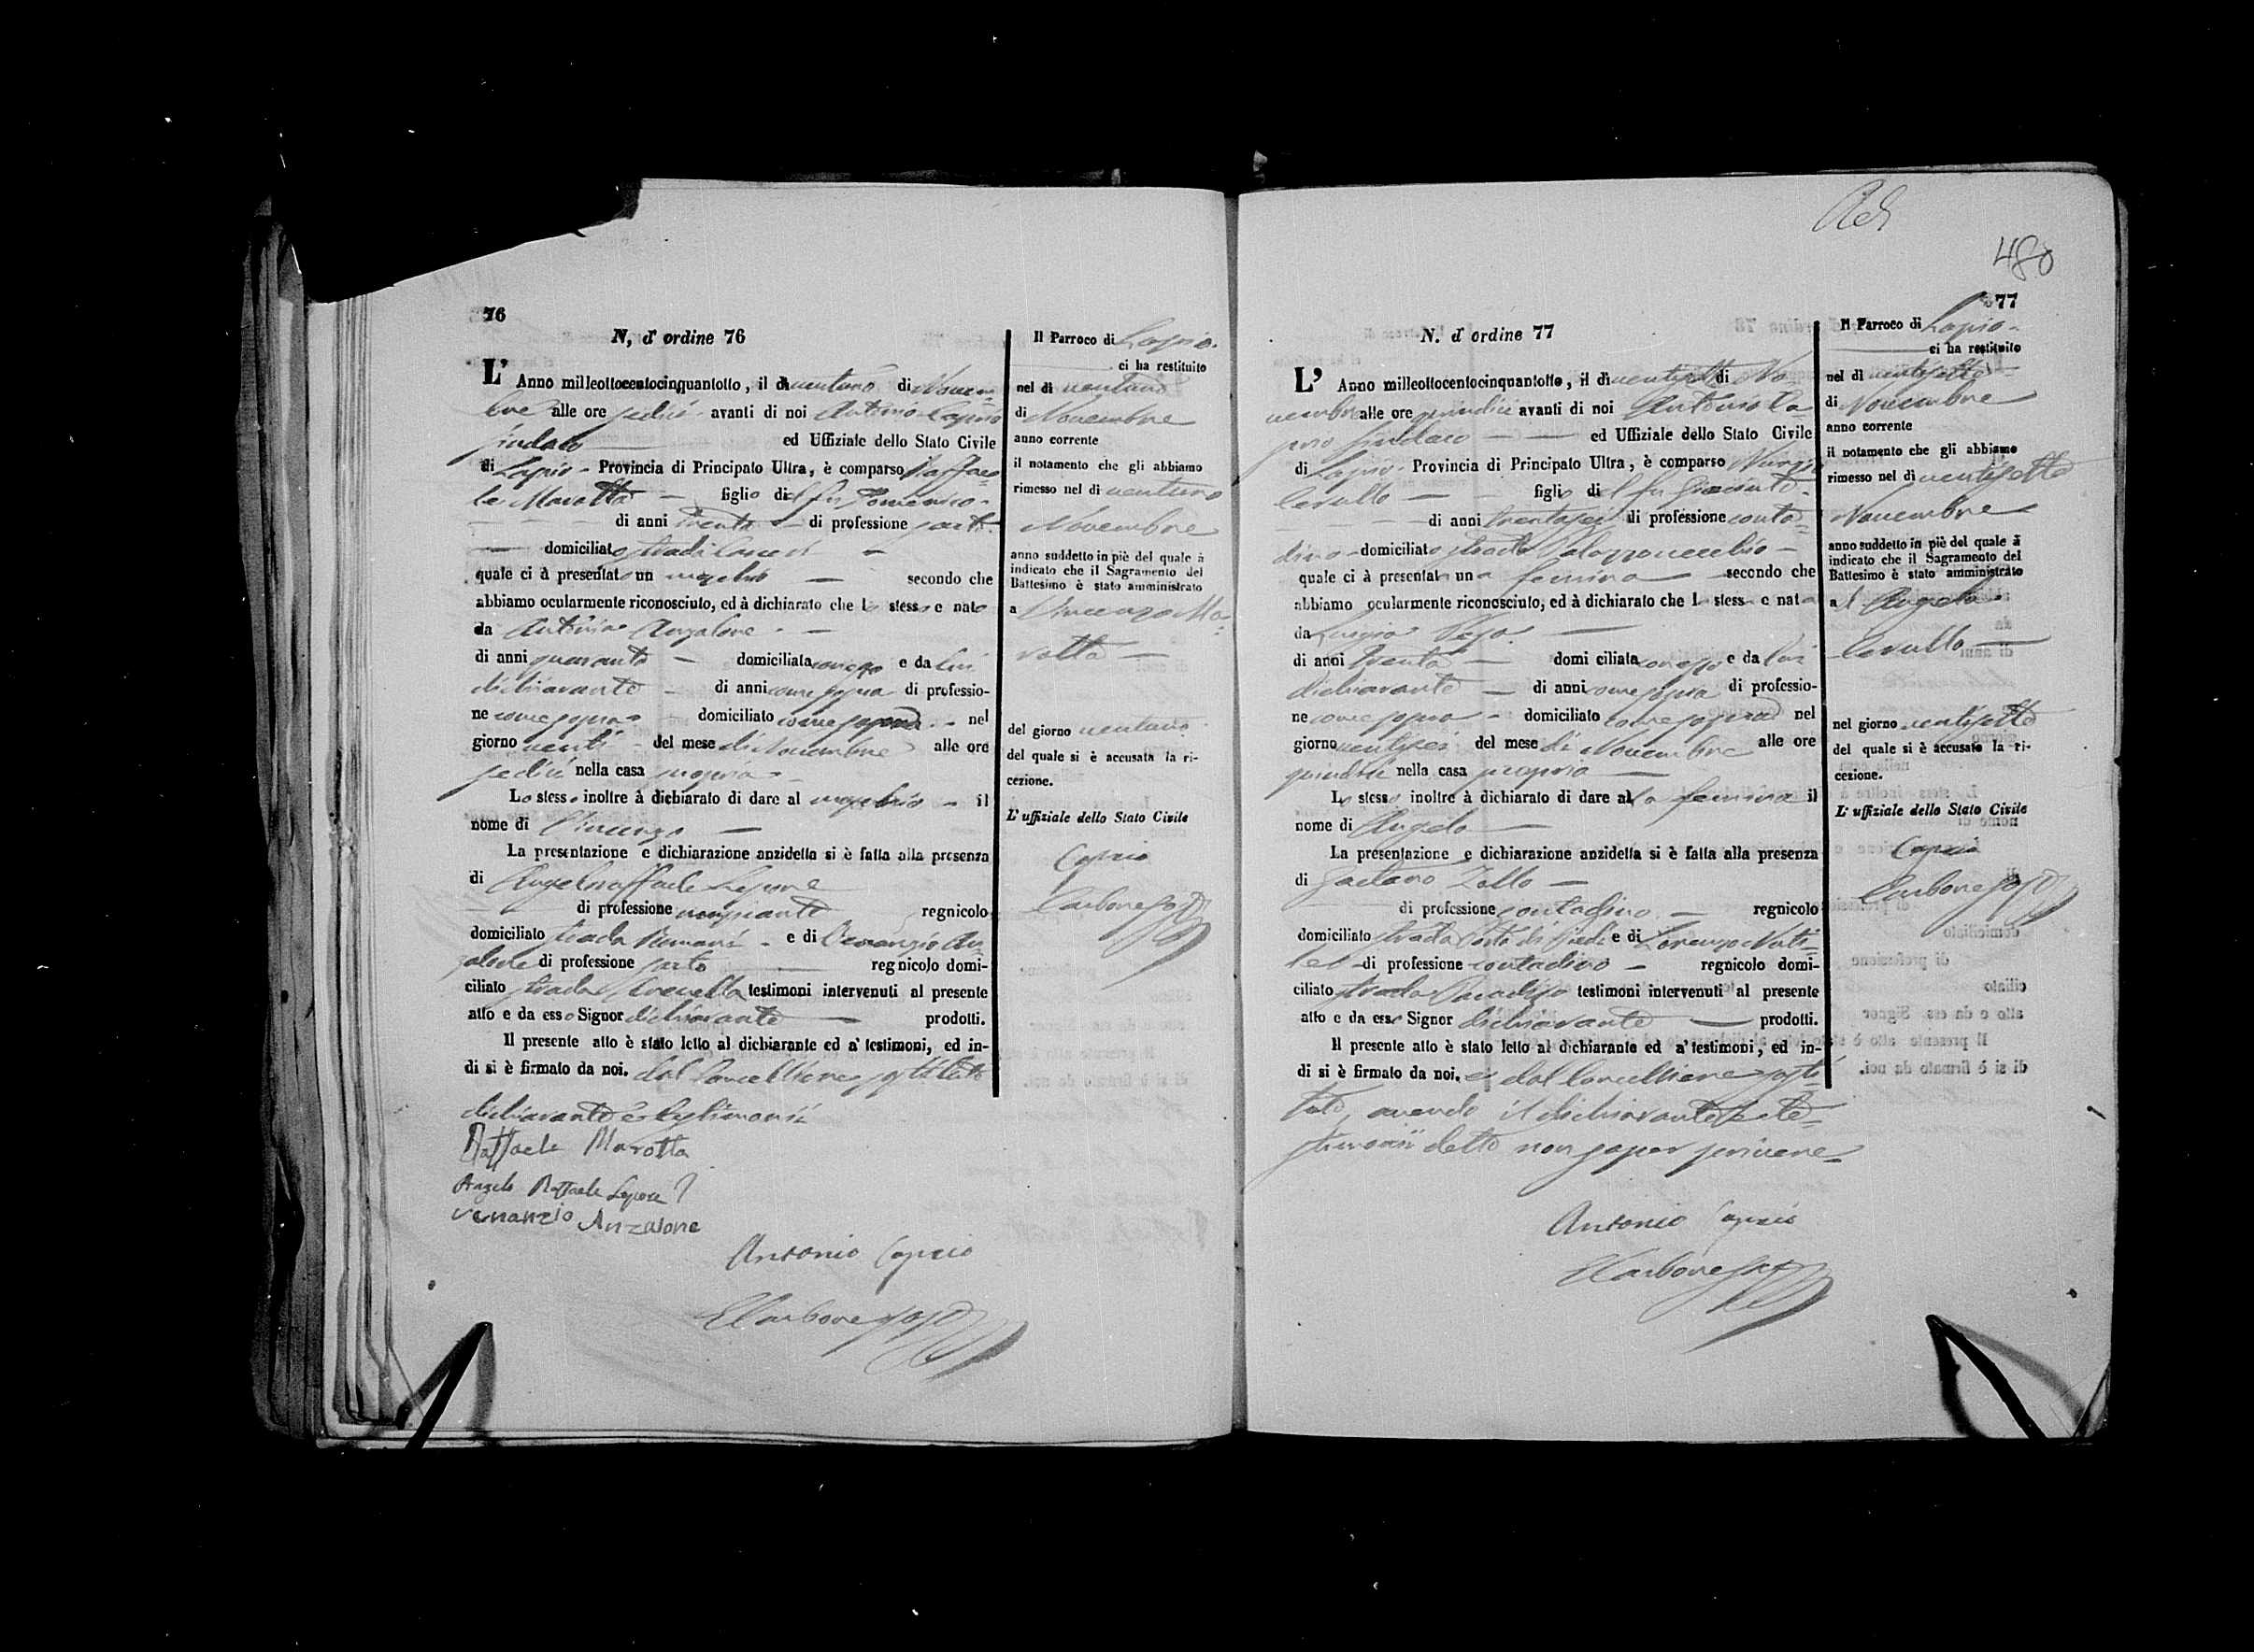 76
N, d' ordine 76
L' Anno millottocentocinquantotto, il dì ventuno di Novem=
bre alle ore sedici avanti di noi Antonio Caprio
Sindaco ed Uffiziale dello Stato Civile
di Lapio - Provincia di Principato Ultra, è comparso Raffae=
le Marotta figlio del fu Domenico
di anni trenta di professione sarto
domiciliato strada
quale ci à presentato un maschio secondo che
abbiamo ocularmente riconosciuto, ed à dichiarato che lo stesso e nato
da Antonia Anzalone
di anni quaranta domiciliata e da lui
dichiarante di anni come sopra di professio-
ne come sopra domiciliato come sopra nel
giorno venti del mese di Novembre alle ore
sedici nella casa propria
Lo stesso inoltre à dichiarato di dare al maschio il
nome di Vincenzo
La presentazione e dichiarazione anzidetta si è fatta alla presenza
di Angelo Raffaele Lepore
di professione regnicolo
domiciliato strada e di Venanzio An=
zalone di professione sarto regnicolo domi-
ciliato strada testimoni intervenuti al presente
atto e da esso Signor dichiarante prodotti.
Il presente atto è stato letto al dichiarante ed a' testimoni, ed in-
di si è firmato da noi. dal Cancelliere sostituto
dichiarante e testimonii
Raffaele Marotta
Angelo Raffaele Lepore
Venanzio Anzalone
Antonio Caprio
Carbone
Il Parroco di Lapio
ci ha restituito
nel di ventuno
di Novembre
anno corrente
il notamento che gli abbiamo
rimesso nel di ventuno
Novembre
anno suddetto in piè del quale à
indicato che il Sagramento del
Battesimo è stato amministrato
a Vincenzo Ma=
rotta
del giorno ventuno
del quale si è accusata la ri-
cezione.
L' uffiziale dello Stato Civile
Caprio
Carbone
480
77
N. d' ordine 77
L' Anno millottocentocinquantotto, il dì ventisette di No=
vembre alle ore quindici avanti di noi Antonio Ca=
prio Sindaco ed Uffiziale dello Stato Civile
di Lapio Provincia di Principato Ultra, è comparso Nunzio
Cerullo figlio del fu Giacinto
di anni trentasei di professione conta=
dino domiciliato strada Palazzovecchio
quale ci à presentat una femina secondo che
abbiamo ocularmente riconosciuto, ed à dichiarato che l stess e nata
da
di anni trenta domi ciliata e da lui
dichiarante di anni come sopra di professio-
ne come sopra domiciliato come sopra nel
giorno ventisei del mese di Novembre alle ore
quindici nella casa propria
Lo stesso inoltre à dichiarato di dare alla femina il
nome di Angela
La presentazione e dichiarazione anzidetta si è fatta alla presenza
di Gaetano Zollo
di professione contadino regnicolo
domiciliato strada e di Lorenzo
di professione contadino regnicolo domi-
ciliato strada Paradiso testimoni intervenuti al presente
atto e da esso Signor dichiarante prodotti.
Il presente atto è stato letto al dichiarante ed a' testimoni, ed in-
di si è firmato da noi. e dal Cancelliere sosti=
tuto, avendo il dichiarante e te=
stimonii detto non saper scrivere
Antonio Caprio
Carbone
Il Parroco di Lapio
ci ha restituito
nel di ventisette
di Novembre
anno corrente
il notamento che gli abbiamo
rimesso nel di ventisette
Novembre
anno suddetto in piè del quale à
indicato che il Sagramento del
Battesimo è stato amministrato
a Angela
Cerullo
nel giorno ventisette
del quale si è accusato la ri-
cezione.
L' uffiziale dello Stato Civile
Caprio
Carbone